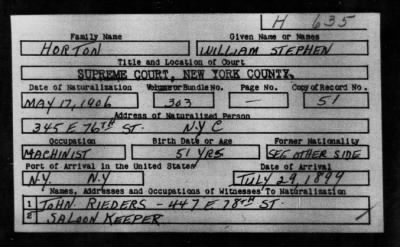 H 635
Family Name Given Name or Names
HORTON WILLIAM STEPHEN
Title and Location of Court
SUPREME COURT, NEW YORK COUNTY.
Date of Naturalization Volume or Bundle No. Page No. Copy of Record No.
MAY 17, 1906 303 — 51
Address of Naturalized Person
345 E 76TH ST. N.Y C
Occupation Birth Date or Age Former Nationality
MACHINIST 51 YRS SEE OTHER SIDE
Port of Arrival in the United States Date of Arrival
N.Y. N.Y JULY 29, 1899
Names, Addresses and Occupations of Witnesses To Naturalization
1 JOHN RIEDERS - 447 E 78TH ST.
2 SALOON KEEPER